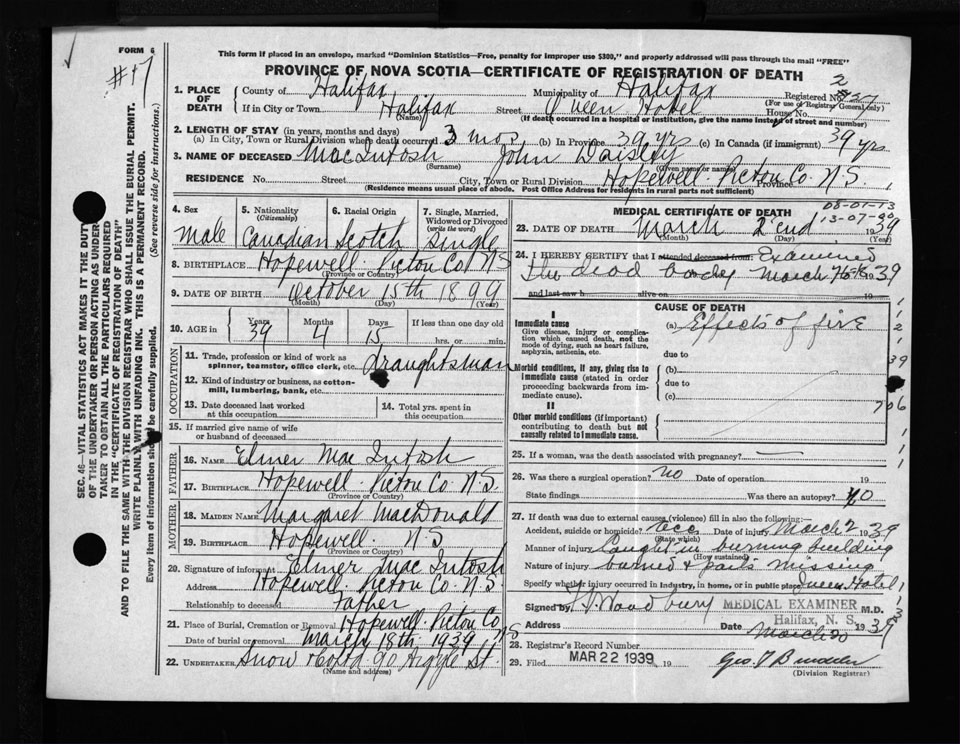 FORM 6
#47
This form if placed in an envelope, marked "Dominion Statistics—Free, penalty for improper use $300," and properly addressed will pass through the mail "FREE"
PROVINCE OF NOVA SCOTIA—CERTIFICATE OF REGISTRATION OF DEATH
1. PLACE OF DEATH
County of Halifax Municipality of Halifax Registered No.
(For use of Registrar General only)
If in City or Town Halifax Street Queen Hotel House No.
(Name) (If death occurred in a hospital or institution, give the name instead of street and number)
2. LENGTH OF STAY (in years, months and days)
(a) In City, Town or Rural Division where death occurred 3 mos (b) In Province 39 yrs (c) In Canada (if immigrant) 39 yrs
3. NAME OF DECEASED MacIntosh John Daisley
(Surname) (Given name or names)
RESIDENCE No. Street City, Town or Rural Division Hopewell. Pictou Co. N.S. Province
(Residence means usual place of abode. Post Office Address for residents in rural parts not sufficient)
4. Sex
Male
5. Nationality
(Citizenship)
Canadian
6. Racial Origin
Scotch
7. Single, Married, Widowed or Divorced
(write the word)
Single
8. BIRTHPLACE Hopewell. Pictou Co. N S
(Province or Country)
9. DATE OF BIRTH October 15th 1899
(Month) (Day) (Year)
10. AGE in
Years Months Days If less than one day old
39 4 15 hrs. or min.
OCCUPATION
11. Trade, profession or kind of work as spinner, teamster, office clerk, etc. draughtsman
12. Kind of industry or business, as cotton-mill, lumbering, bank, etc.
13. Date deceased last worked at this occupation
14. Total yrs. spent in this occupation
15. If married give name of wife or husband of deceased
FATHER
16. NAME Elmer MacIntosh
17. BIRTHPLACE Hopewell. Pictou Co. N.S.
(Province or Country)
MOTHER
18. MAIDEN NAME Margaret MacDonald
19. BIRTHPLACE Hopewell. N S
(Province or Country)
20. Signature of informant Elmer MacIntosh
Address Hopewell. Pictou Co. N.S.
Relationship to deceased Father
21. Place of Burial, Cremation or Removal Hopewell. Pictou Co N S
Date of burial or removal March 18th 1939
22. UNDERTAKER Snow & Co Ltd 90 Argyle St.
(Name and address)
MEDICAL CERTIFICATE OF DEATH
08-01-13
13-07-90
23. DATE OF DEATH March 2'end 1939
(Month) (Day) (Year)
24. I HEREBY CERTIFY that I attended deceased from: Examined
the dead body March 1939
and last saw h alive on 19
CAUSE OF DEATH
I
Immediate cause
Give disease, injury or complication which caused death, not the mode of dying, such as heart failure, asphyxia, asthenia, etc.
(a) Effects of fire
due to
Morbid conditions, if any, giving rise to immediate cause (stated in order proceeding backwards from immediate cause).
(b)
due to
(c)
II
Other morbid conditions (if important) contributing to death but not causally related to immediate cause.
25. If a woman, was the death associated with pregnancy?
26. Was there a surgical operation? no Date of operation 19
State findings Was there an autopsy? no
27. If death was due to external causes (violence) fill in also the following:—
Accident, suicide or homicide? acc. Date of injury March 2 1939
(State which)
Manner of injury Caught in burning building
(How sustained)
Nature of injury burned & parts missing
Specify whether injury occurred in industry, in home, or in public place Queen Hotel
Signed by Woodbury MEDICAL EXAMINER M.D.
Address Halifax, N. S. Date March 20 1939
28. Registrar's Record Number
29. Filed MAR 22 1939 19
(Division Registrar)
SEC. 46—VITAL STATISTICS ACT MAKES IT THE DUTY OF THE UNDERTAKER OR PERSON ACTING AS UNDERTAKER TO OBTAIN ALL THE PARTICULARS REQUIRED IN THE "CERTIFICATE OF REGISTRATION OF DEATH" AND TO FILE THE SAME WITH THE DIVISION REGISTRAR WHO SHALL ISSUE THE BURIAL PERMIT.
WRITE PLAINLY WITH UNFADING INK. THIS IS A PERMANENT RECORD.
Every item of information should be carefully supplied. (See reverse side for instructions.)